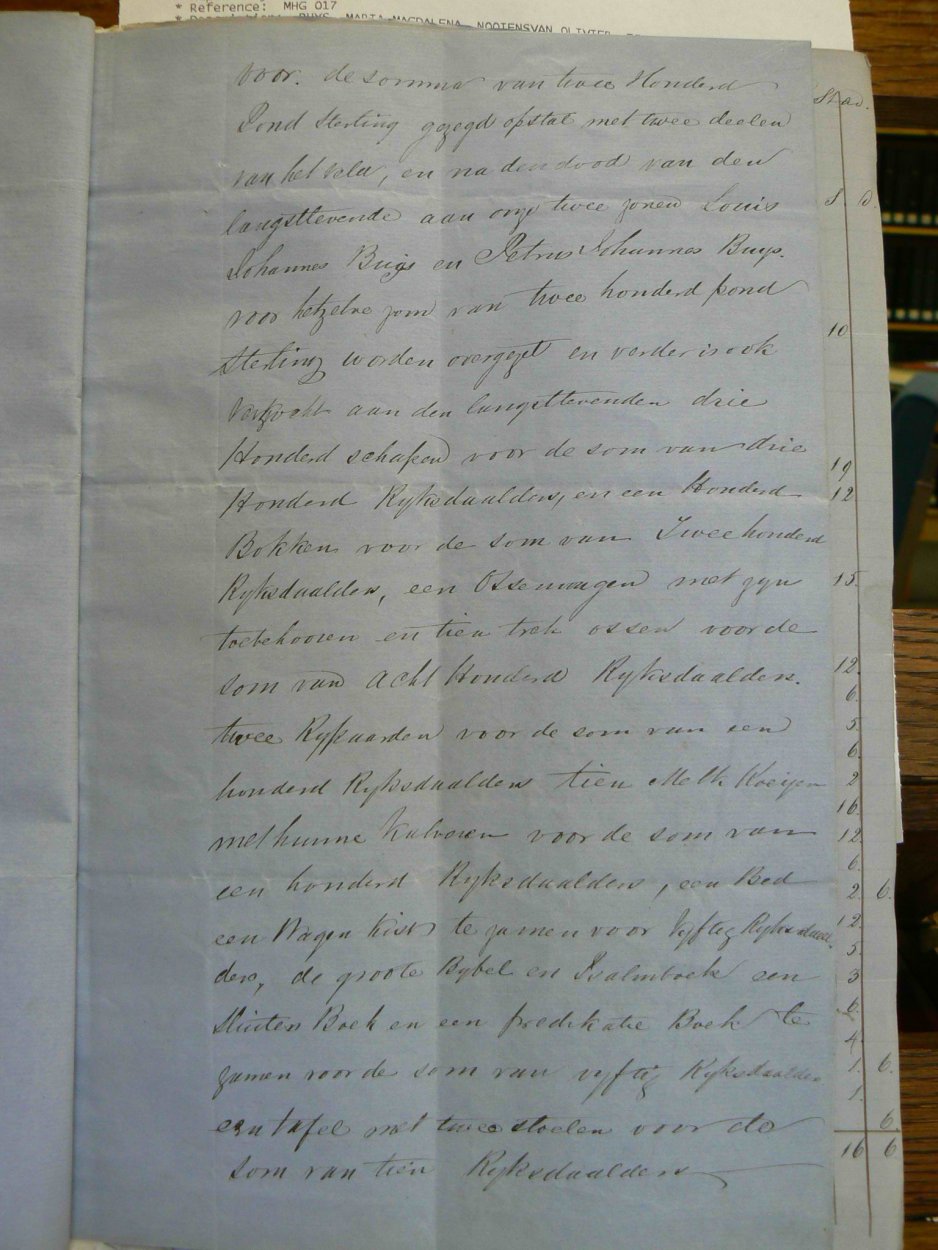 * Reference: MHG 017
BUYS, MARIA MAGDALENA. NOOIENSVAN OLIVIER.
voor. de somma van twee Honderd
Pond Sterling gezegd opstal met twee deelen
van het veld, en na den dood van den
langstlevende aan onze twee zonen Louis
Johannes Buys en Petrus Johannes Buys.
voor hetzelve som van twee honderd pond
Sterling worden overgezet en verder is ook
Verkocht aan den langstlevenden drie
Honderd schapen voor de som van drie
Honderd Ryksdaalders, en een Honderd
Bokken voor de som van Twee honderd
Ryksdaalders, een Ossewagen met zyn
toebehooren en tien trek ossen voor de
som van acht Honderd Ryksdaalders.
twee Rypaarden voor de som van een
honderd Ryksdaalders tien Melk Koeijen
met hunne kalveren voor de som van
een honderd Ryksdaalders, een Bed
een Wagen Kist te zamen voor Vyftig Ryksdaal-
ders, de groote Bybel en Psalmboek een
Boek en een predikatie Boek te
zamen voor de som van vyftig Ryksdaalders
een tafel met twee stoelen voor de
som van tien Ryksdaalders
S D.
10
19
12
15.
12.
6.
5.
6.
2
16.
12.
6.
2 6.
12.
5.
3
6.
4.
1. 6.
1.
6.
16 6